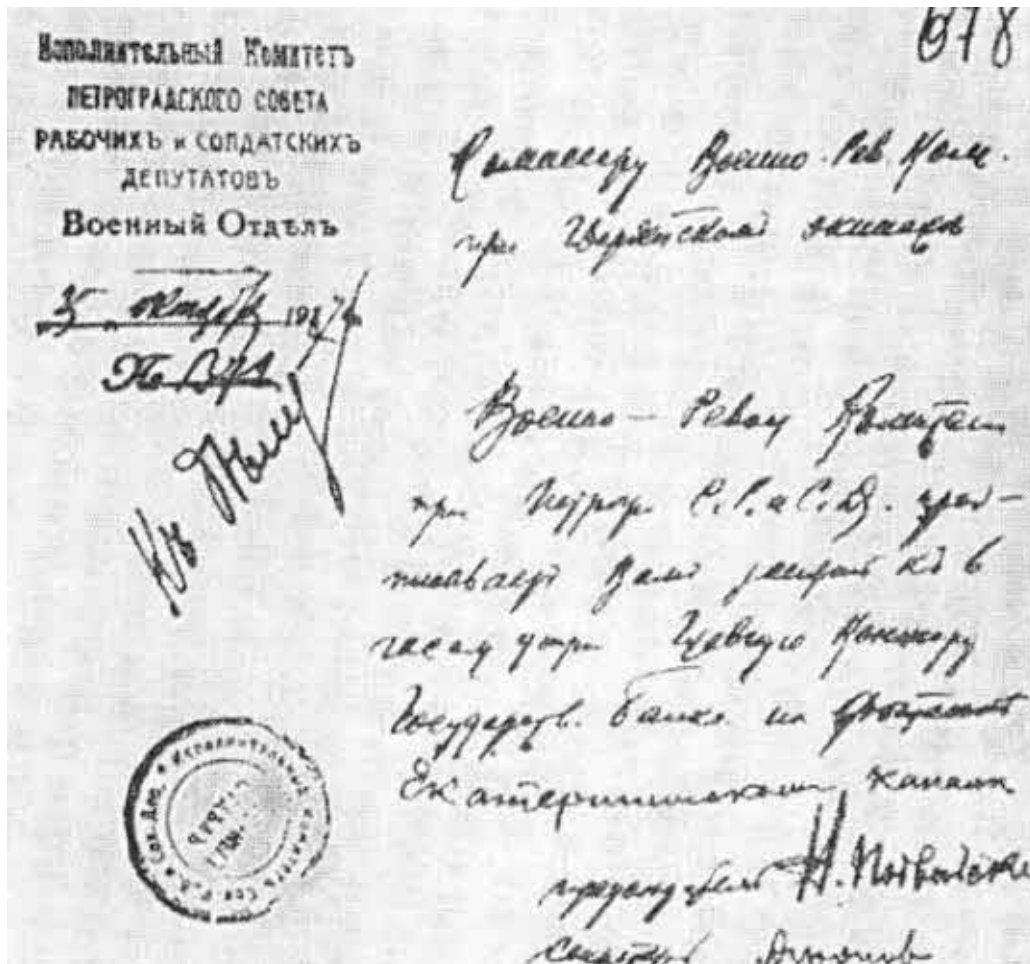 578
Исполнительный Комитетъ
ПЕТРОГРАДСКОГО СОВЕТА
РАБОЧИХЪ и СОЛДАТСКИХЪ
ДЕПУТАТОВЪ
Военный Отдѣлъ
25 октября 1917 г.
Комиссару Военно-Рев. Ком.
при Гвардейском экипаже
Военно-Револ Комитет
при Петрогр. С.Р. и С.Д. пред-
писывает Вам занять к 6
часам утра Главную Контору
Государств. банка на
Екатерининском канале
председатель Н. Подвойский
Секретарь Антонов